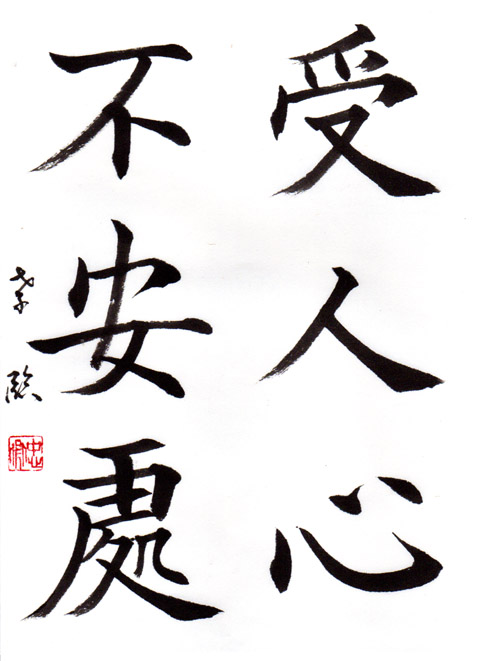 受人心
不安處
臨